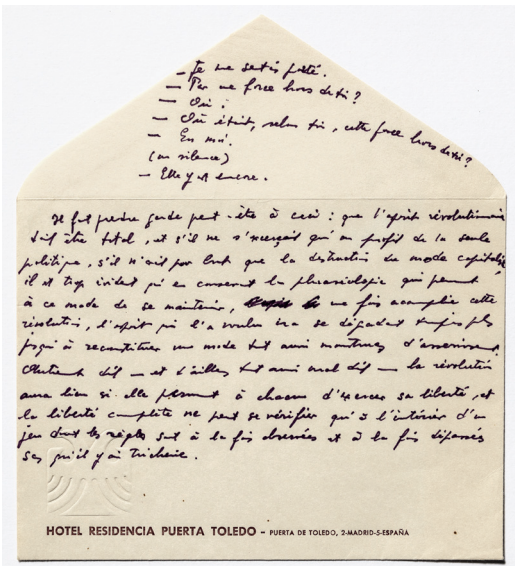 – Je me sentis porté.
– Par une force hors de toi?
– Oui.
– Où était, selon toi, cette force hors de toi?
– En moi.
(un silence)
– Elle y est encore.
Il faut prendre garde peut-être à ceci : que l'esprit révolutionnaire
doit être total, et s'il ne s'exerçait qu'au profit de la seule
politique, s'il n'avait pour but que la destruction du mode capitaliste
il est trop évident qu'en conservant la phraséologie qui permet
à ce mode de se maintenir, une fois accomplie cette
révolution, l'esprit qui l'a voulue ira se dégradant toujours plus
jusqu'à reconstituer un mode tout aussi monstrueux d'asservissement.
Autrement dit – et d'ailleurs tout aussi mal dit – la révolution
aura lieu si elle permet à chacun d'exercer sa liberté, et
la liberté complète ne peut se vérifier qu'à l'intérieur d'un
jeu dont les règles sont à la fois observées et à la fois dépassées
sans qu'il y ait tricherie.
HOTEL RESIDENCIA PUERTA TOLEDO – PUERTA DE TOLEDO, 2-MADRID-5-ESPAÑA